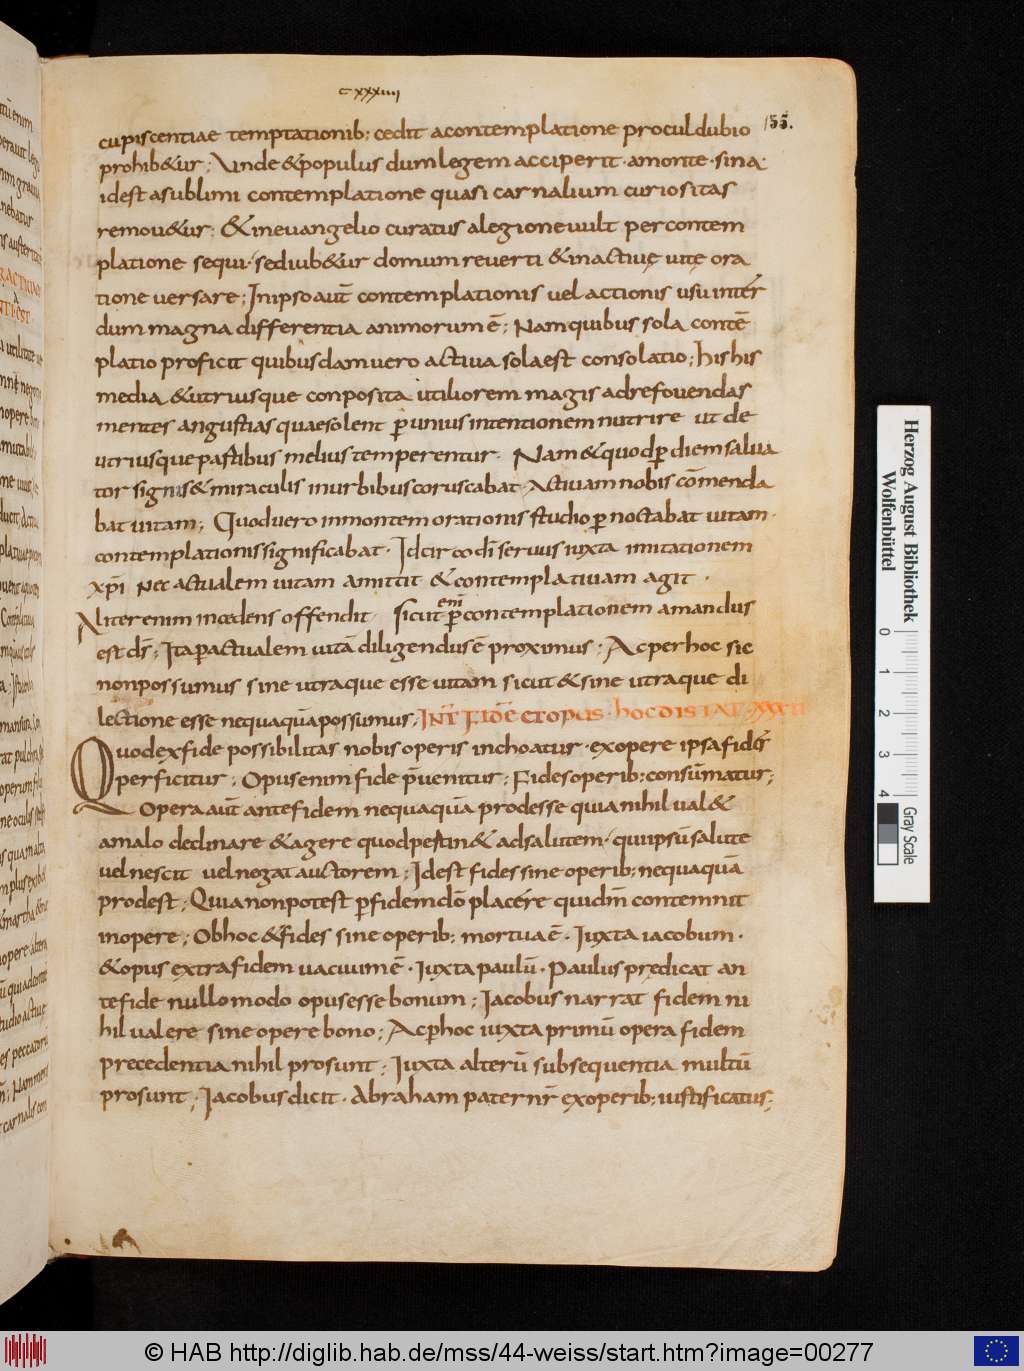 cxxxiiii
155.
cupiscentiae temptationib; cedit acontemplatione proculdubio
prohib&ur; Vnde &populus dumlegem acciperit· amonte· sina·
idest asublimi contemplatione quasi carnalium curiositas
remou&ur; &ineuangelio curatus alegioneuult percontem
platione sequi· sediub&ur domum reuerti &inactiuę uitę ora
tione uersare; Inipso aut̄ contemplationis uel actionis usu inter
dum magna differentia animorum ē; Nam quibus sola contē
platio proficit quibusdam uero actiua sola est consolatio; his his
media &utriusque conposita utiliorem magis adrefouendas
mentes angustias quaesolent p̱ unius intentionem nutrire ut de
utriusque pastibus melius temperentur· Nam &quod p̱ diem salua
tor signis &miraculis inurbibus coruscabat· Actiuam nobis cōmenda
bat uitam; Quoduero inmontem orationis studio p̱noctabat uitam·
contemplationis significabat· Idcirco dī seruus iuxta imitationem
xp̄i nec actualem uitam amittit &contemplatiuam agit·
Aliter enim incedens offendit sicut eni p̱ contemplationem amandus
est ds̄; Ita p̱actualem uitā diligendus ē proximus; Ac per hoc sic
nonpossumus sine utraque esse uitam sicut &sine utraque di
lectione esse nequaquā possumus; INT̄ FIDĒ ETOPUS· hoc DISTAT· XXXII
Quod exfide possibilitas nobis operis inchoatur· exopere ipsa fides
perficitur; Opus enim fide p̄uenitur; Fides operib; consūmatur;
Opera aut̄ antefidem nequaquā prodesse quia nihil ual&
amalo declinare &agere quod pestin& adsalutem· qui ipsū salute
uelnescit uel negat auctorem; Idest fides sine operib; nequaquā
prodest; Quia nonpotest p̱fidem dō placere qui dm̄ contemnit
inopere; Obhoc &fides sine operib; mortua ē· Iuxta iacobum·
&opus extra fidem uacuum ē· Iuxta paulū· Paulus prędicat an
tefide nullo modo opus esse bonum; Iacobus narrat fidem ni
hil ualere sine opere bono; Ac p̱hoc iuxta primū opera fidem
precedentia nihil prosunt; Iuxta alterū subsequentia multū
prosunt; Iacobus dicit· Abraham pater nr̄ exoperib; iustificatus;
Herzog August Bibliothek
Wolfenbüttel
0 1 2 3 4
Gray Scale
© HAB http://diglib.hab.de/mss/44-weiss/start.htm?image=00277